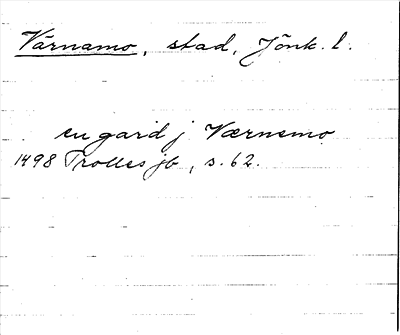 Värnamo, stad, Jönk. l.
en gard j Værnemo
1498 Trolles jb, s. 62.